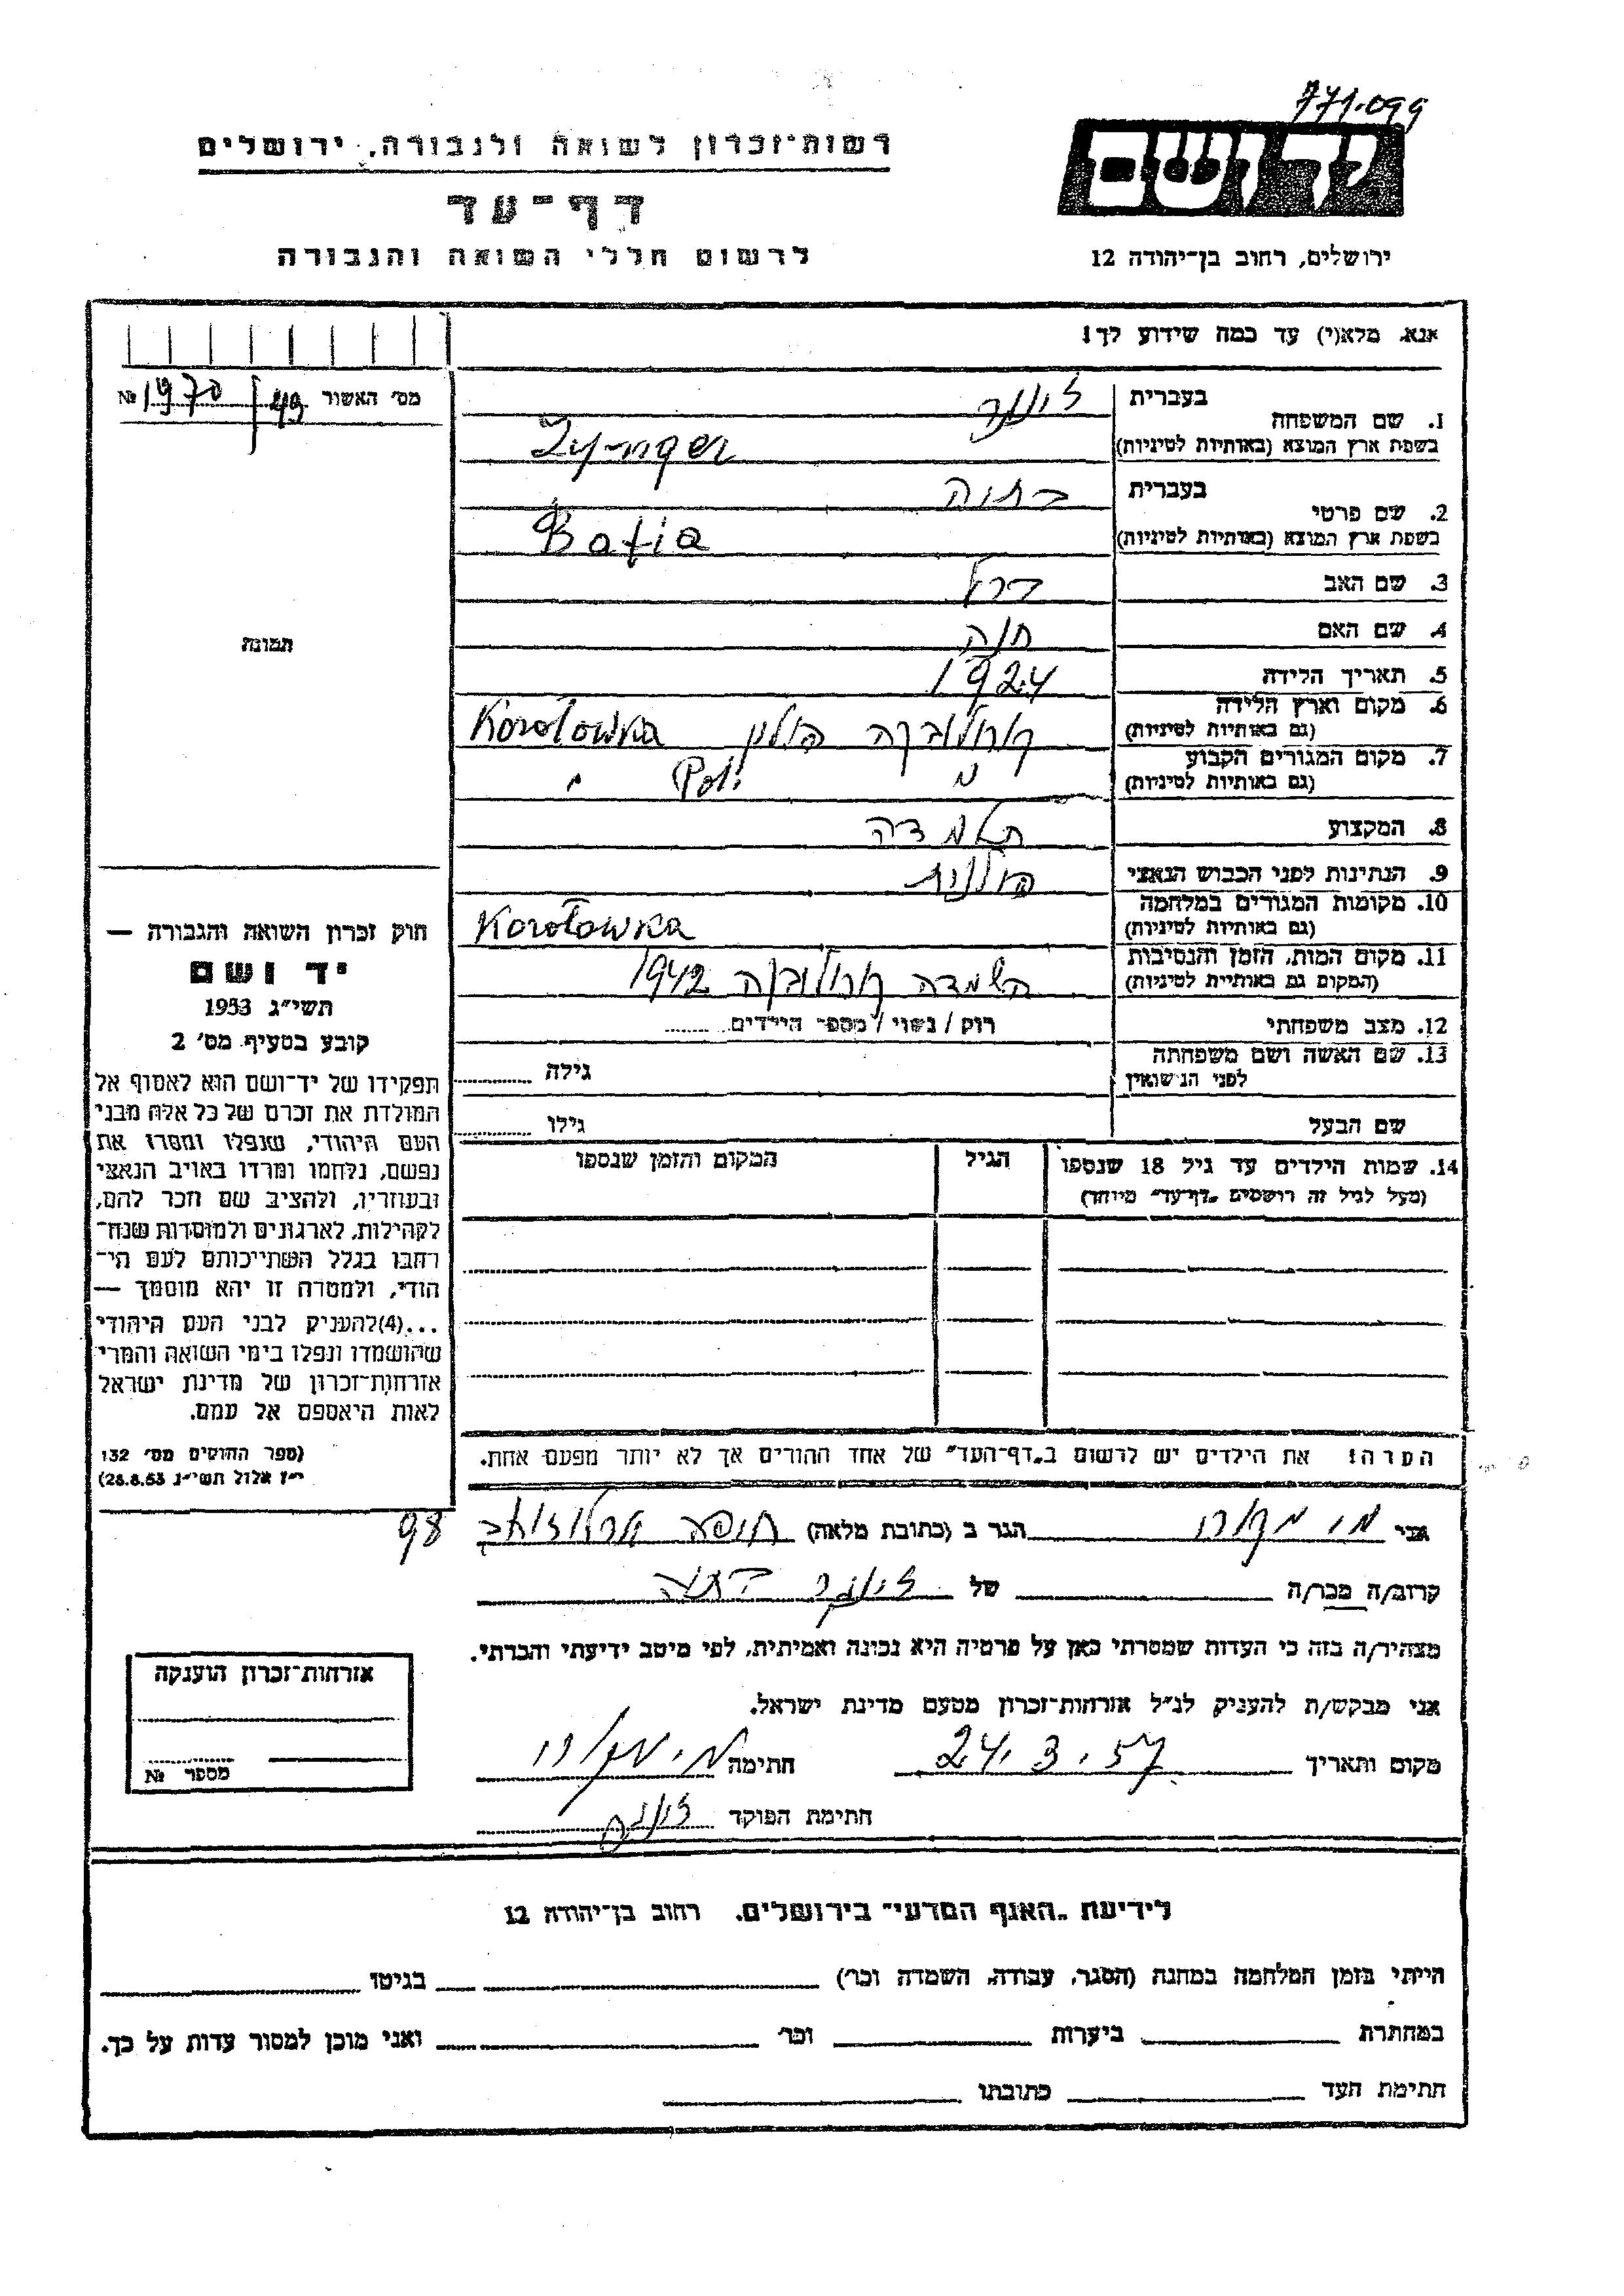 771.099
יד ושם
רשות־זכרון לשואה ולגבורה, ירושלים
דף־עד
לרשום חללי השואה והגבורה
ירושלים, רחוב בן־יהודה 12
אנא, מלא(י) עד כמה שידוע לך!
מס׳ האשור 49 / 1970 №
1. שם המשפחה
בעברית זינגר
בשפת ארץ המוצא (באותיות לטיניות) Zynger
2. שם פרטי
בעברית בתיה
בשפת ארץ המוצא (באותיות לטיניות) Batia
3. שם האב ברל
4. שם האם חנה
5. תאריך הלידה 1924
6. מקום וארץ הלידה קורולובקה פולין Korołowka
(גם באותיות לטיניות)
7. מקום המגורים הקבוע " Pol. "
(גם באותיות לטיניות)
8. המקצוע תלמידה
9. הנתינות לפני הכבוש הנאצי פולנית
10. מקומות המגורים במלחמה Korołowka
(גם באותיות לטיניות)
11. מקום המות, הזמן והנסיבות השמדה קורולובקה 1942
(המקום גם באותיית לטיניות)
12. מצב משפחתי רוק / נשוי / מספר הילדים
13. שם האשה ושם משפחתה גילה
לפני הנישואין
שם הבעל גילו
14. שמות הילדים עד גיל 18 שנספו הגיל המקום והזמן שנספו
(מעל לגיל זה רושמים „דף־עד" מיוחד)
הערה: את הילדים יש לרשום ב„דף־העד" של אחד ההורים אך לא יותר מפעם אחת.
תמונה
חוק זכרון השואה והגבורה —
יד ושם
תשי״ג 1953
קובע בסעיף מס׳ 2
תפקידו של יד־ושם הוא לאסוף אל
המולדת את זכרם של כל אלה מבני
העם היהודי, שנפלו ומסרו את
נפשם, נלחמו ומרדו באויב הנאצי
ובעוזריו, ולהציב שם וזכר להם,
לקהילות, לארגונים ולמוסדות שנח־
רבו בגלל השתייכותם לעם הי־
הודי, ולמטרה זו יהא מוסמך —
...(4)להעניק לבני העם היהודי
שהושמדו ונפלו בימי השואה והמרי
אזרחות־זכרון של מדינת ישראל
לאות היאספם אל עמם.
(ספר החוקים מס׳ 132
י״ז אלול תשי״ג 28.8.53)
אני הגר ב (כתובת מלאה) חיפה ארלוזורוב 98
קרוב/ה מכר/ה של זינגר בתיה
מצהיר/ה בזה כי העדות שמסרתי כאן על פרטיה היא נכונה ואמיתית, לפי מיטב ידיעתי והכרתי.
אני מבקש/ת להעניק לנ״ל אזרחות־זכרון מטעם מדינת ישראל.
מקום ותאריך 24.3.57 חתימה
חתימת הפוקד
אזרחות־זכרון הוענקה
מספר №
לידיעת „האגף המדעי" בירושלים. רחוב בן־יהודה 12
הייתי בזמן המלחמה במחנה (הסגר, עבודה, השמדה וכר׳) בגיטו
במחתרת ביערות וכר׳ ואני מוכן למסור עדות על כך.
חתימת העד כתובתו